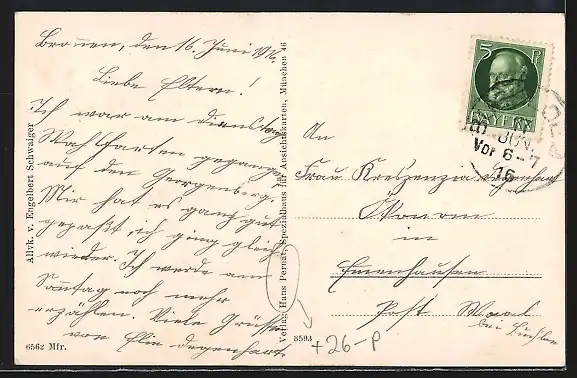 Bronnen, den 16. Juni 1916.
Liebe Eltern!
Ich war am Dienstag
Wahlfarten gegangen
auf den Georgenberg.
Mir hat es ganz gut
gepaßt ich ging gleich
wieder. Ich werde am
Sonntag noch mehr
erzählen. Viele Grüße
von Elin Degenhart.
6562 Mfr.
Allvk. v. Engelbert Schwaiger
Verlag Hans Pernat, Spezialhaus für Ansichtskarten, München 46
8593
+26-P
5 P
BAYERN
JUN.
Vor 6-7
16
An
Frau Kreszenzia Degenhart
Ökonom
in
Emenhausen
Post Waal
bei Buchloe